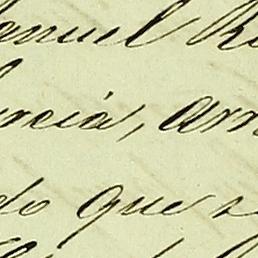 anuel R
ncia, arr
do que s